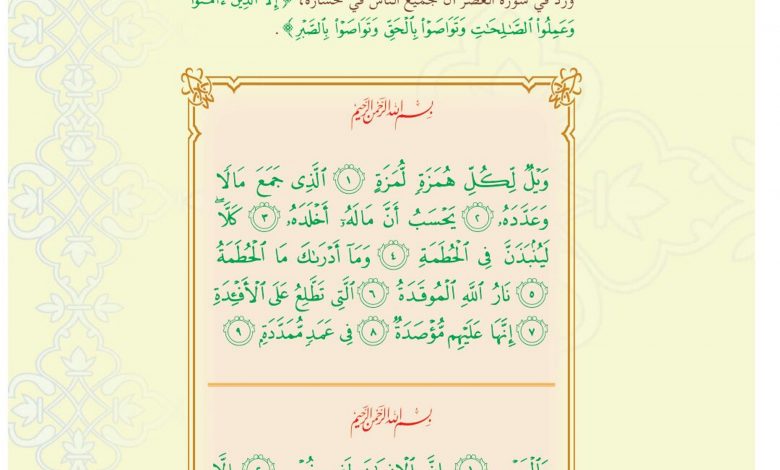 ورد في سورة العصر أن جميع الناس في خسارة، ﴿إِلَّا ٱلَّذِينَ ءَامَنُواْ
وَعَمِلُواْ ٱلصَّـٰلِحَـٰتِ وَتَوَاصَوۡاْ بِٱلۡحَقِّ وَتَوَاصَوۡاْ بِٱلصَّبۡرِ﴾.
بِسْمِ اللَّهِ الرَّحْمَنِ الرَّحِيمِ
وَيۡلٞ لِّكُلِّ هُمَزَةٖ لُّمَزَةٍ ١ ٱلَّذِي جَمَعَ مَالٗا
وَعَدَّدَهُۥ ٢ يَحۡسَبُ أَنَّ مَالَهُۥٓ أَخۡلَدَهُۥ ٣ كَلَّاۖ
لَيُنۢبَذَنَّ فِي ٱلۡحُطَمَةِ ٤ وَمَآ أَدۡرَىٰكَ مَا ٱلۡحُطَمَةُ
٥ نَارُ ٱللَّهِ ٱلۡمُوقَدَةُ ٦ ٱلَّتِي تَطَّلِعُ عَلَى ٱلۡأَفۡـِٔدَةِ
٧ إِنَّهَا عَلَيۡهِم مُّؤۡصَدَةٞ ٨ فِي عَمَدٖ مُّمَدَّدَةِۭ ٩
بِسْمِ اللَّهِ الرَّحْمَنِ الرَّحِيمِ